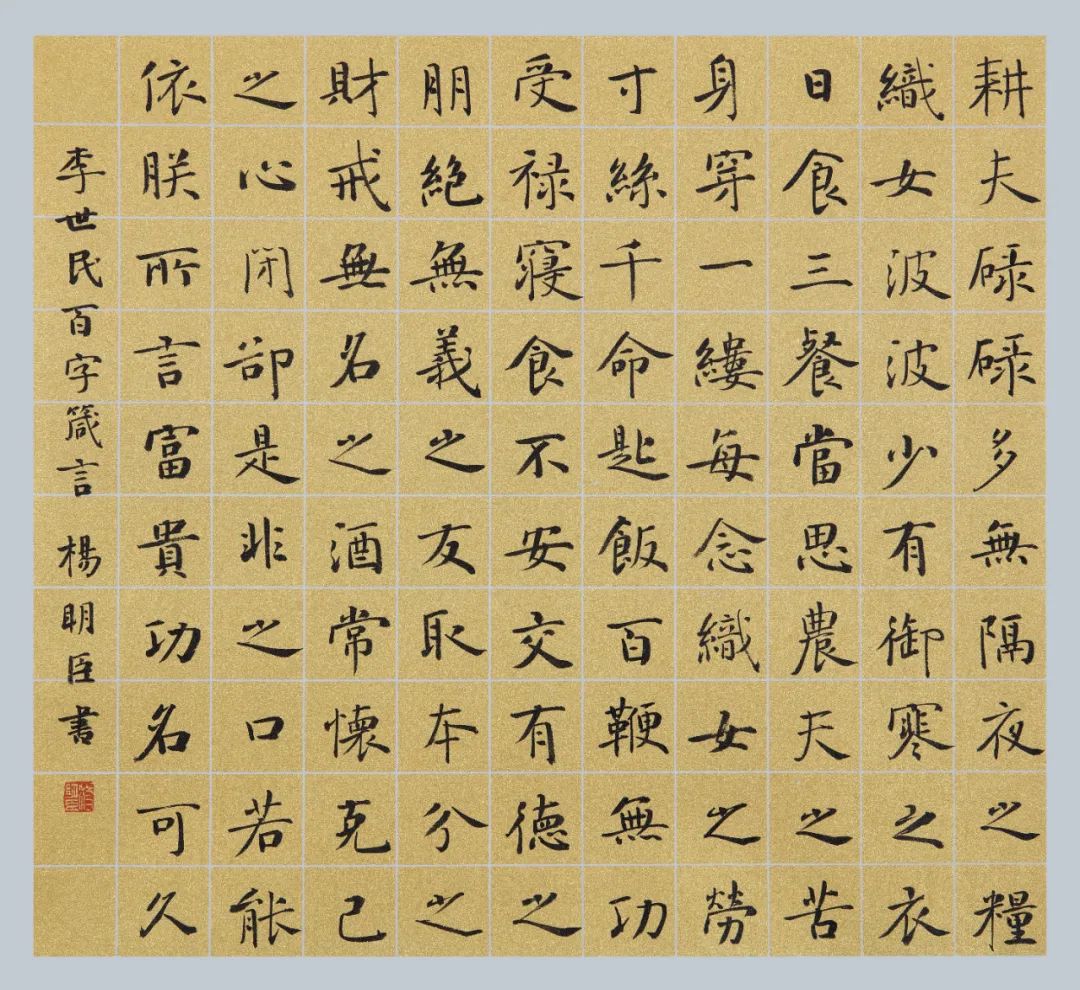 耕夫碌碌多無隔夜之糧
織女波波少有御寒之衣
日食三餐當思農夫之苦
身穿一縷每念織女之勞
寸絲千命匙飯百鞭無功
受禄寢食不安交有德之
朋絕無義之友取本分之
財戒無名之酒常懷克己
之心閉卻是非之口若能
依朕所言富貴功名可久
李世民百字箴言 楊明臣書